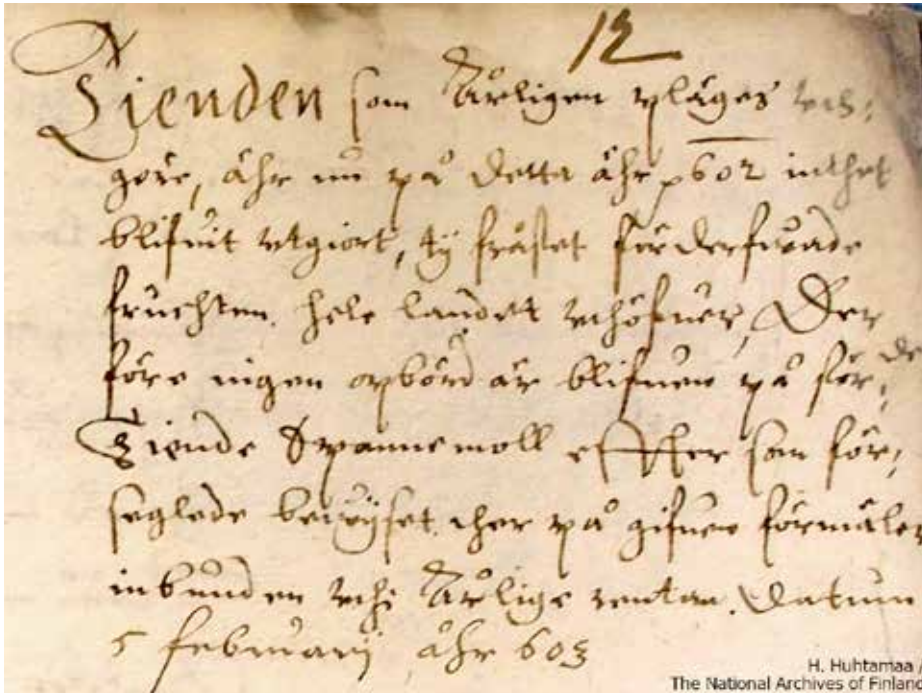 12
Tienden som Årligen pläges
göre, ähr nu på detta åhr 602 inthet
blifuit utgiort, ty fråset förderfuade
fruchten, hele landet Der
före ingen opbörd är blifuen på för:
de
Tiende Spannemoll effther som för:
seglede bevijset. her på gifuen förmäler
inbunden Årlige rentan. Datum
5 februarij åhr 603
H. Huhtamaa /
The National Archives of Finland